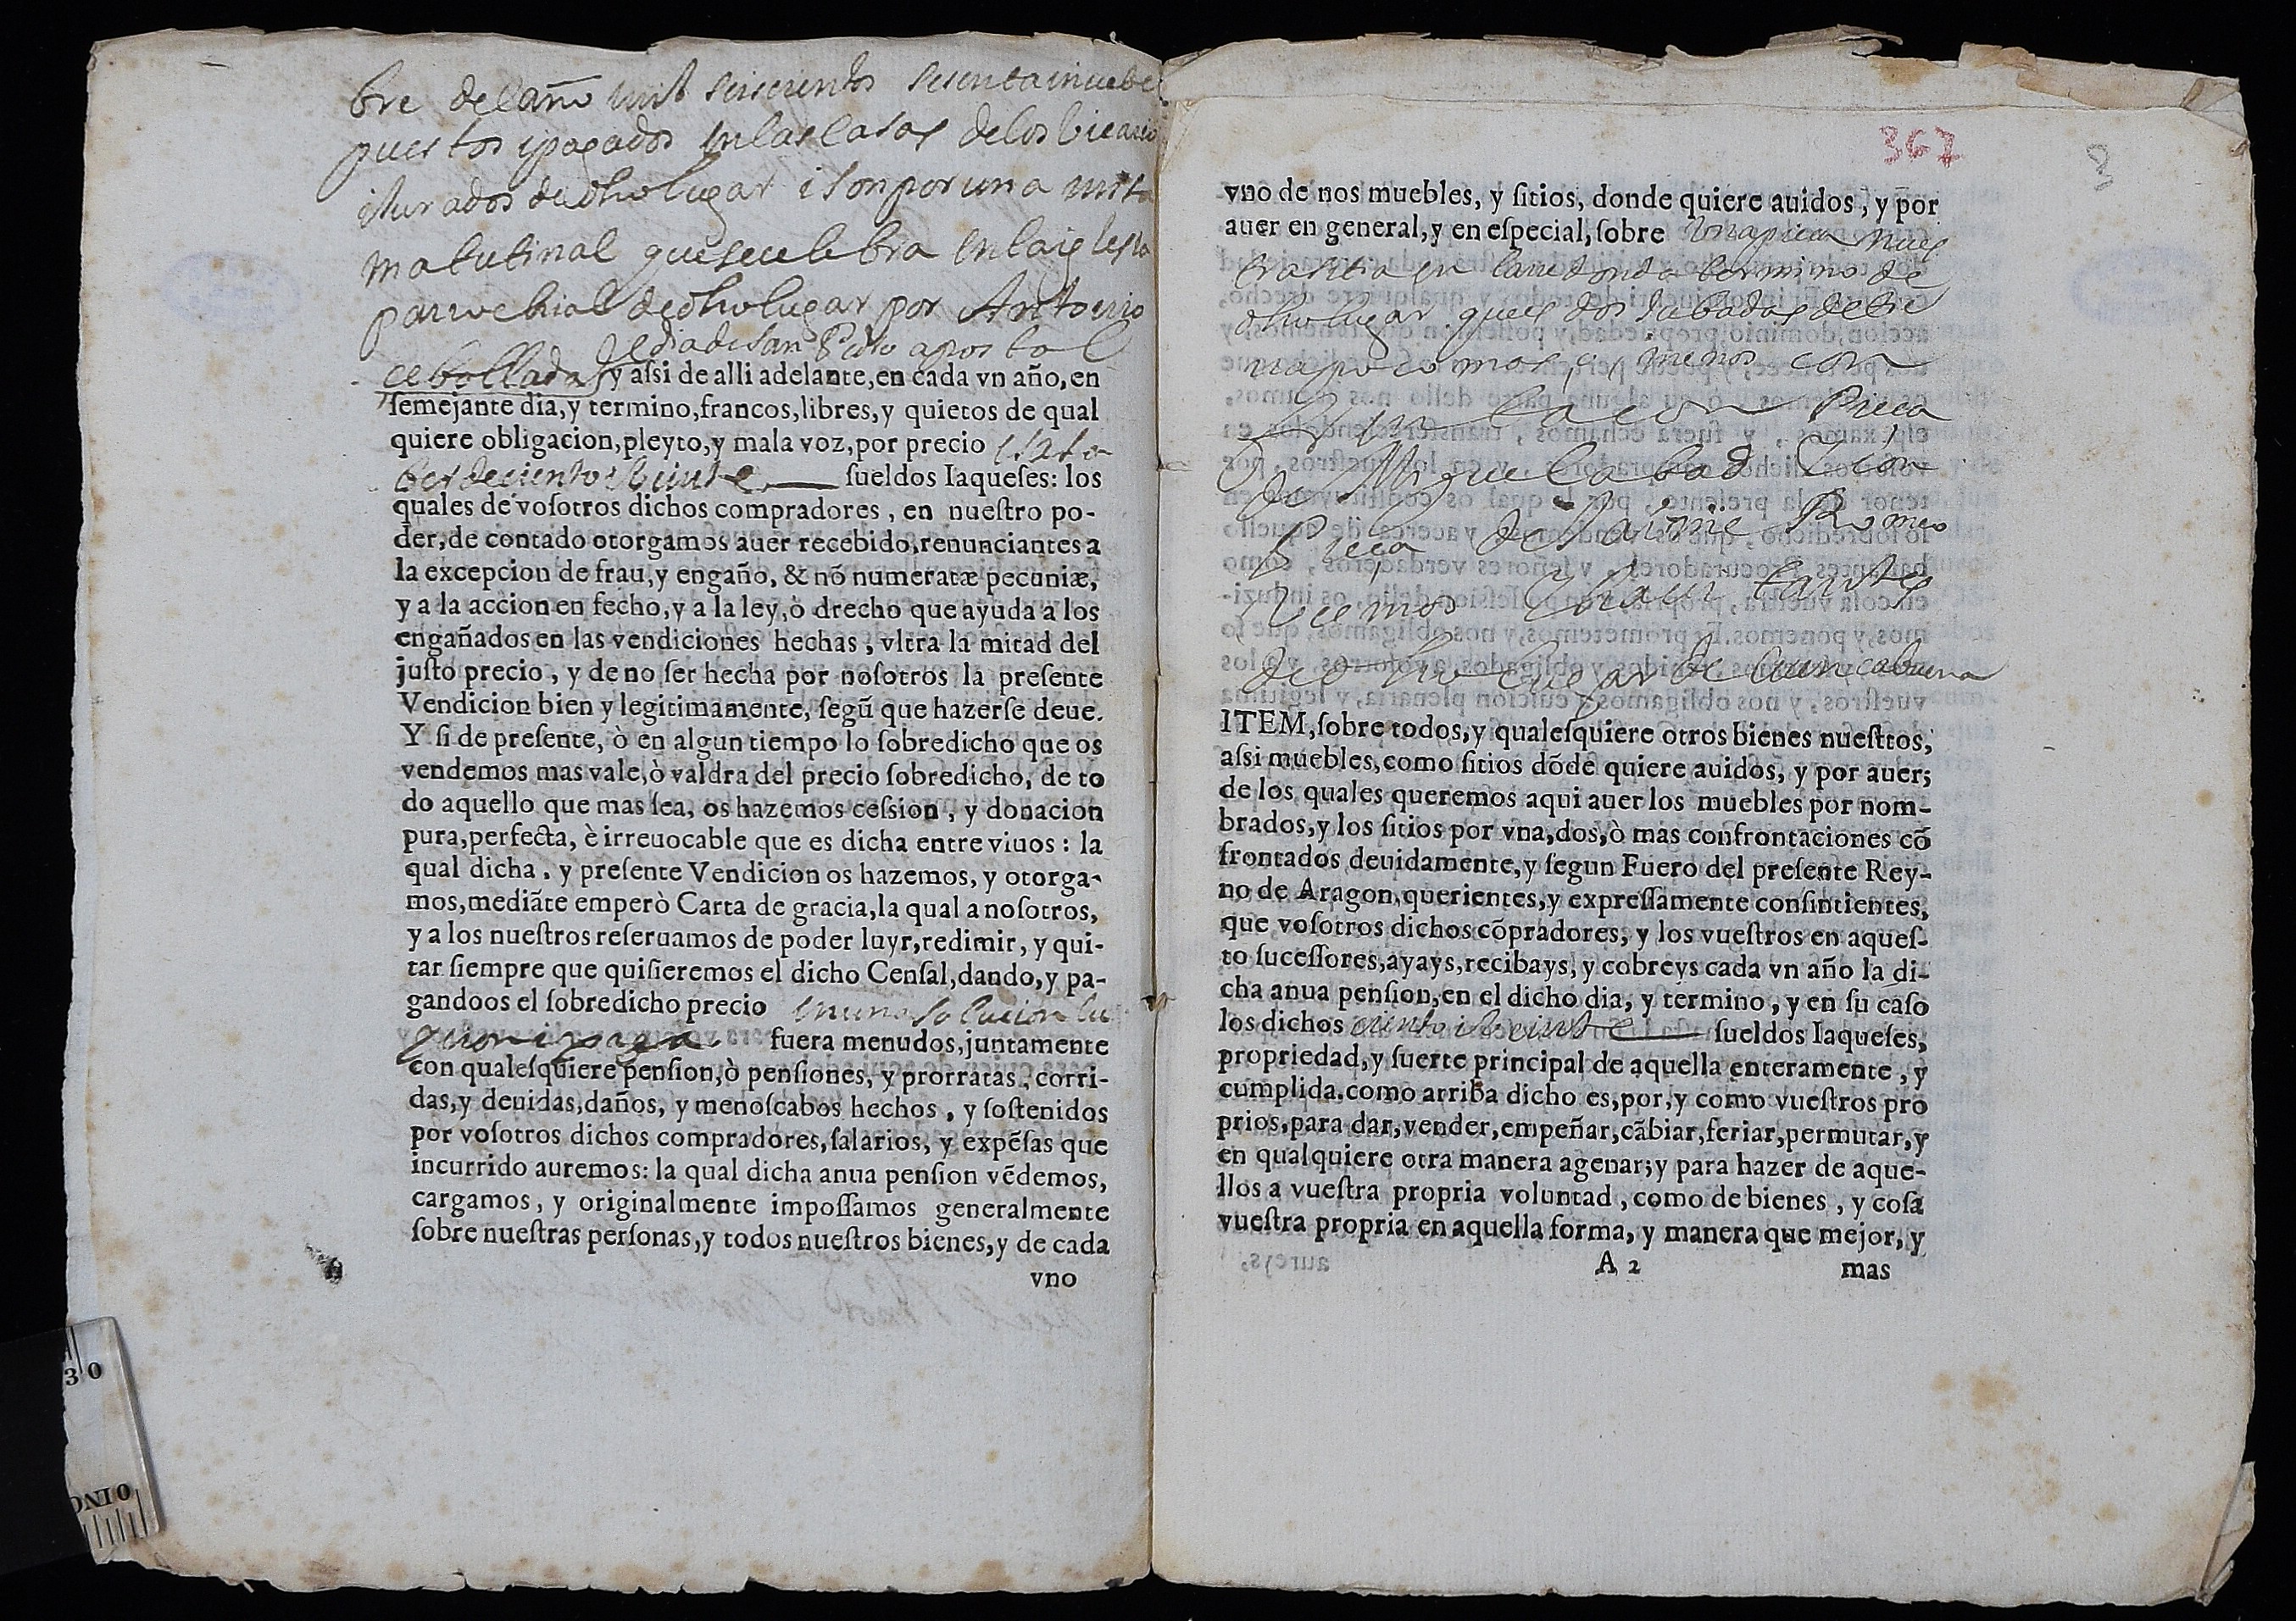 bre del año mil seiscientos sesentainuebe
puestos ipagados en las casas delos bicario
iJurados de dho lugar i son por una missa
matutinal que se celebra en la iglesia
parrochial de dho lugar por Antonio
cebollada el dia de San Pedro apostol
y assi de alli adelante, en cada vn año, en
semejante dia, y termino, francos, libres, y quietos de qual
quiere obligacion, pleyto, y mala voz, por precio es a sa
ber de ciento i beinte sueldos Iaqueses: los
quales de vosotros dichos compradores, en nuestro po-
der, de contado otorgamos auer recebido, renunciantes a
la excepcion de frau, y engaño, & nõ numeratæ pecuniæ,
y a la accion en fecho, y a la ley, ò drecho que ayuda a los
engañados en las vendiciones hechas, vltra la mitad del
justo precio, y de no ser hecha por nosotros la presente
Vendicion bien y legitimamente, segũ que hazerse deue.
Y si de presente, ò en algun tiempo lo sobredicho que os
vendemos mas vale, ò valdra del precio sobredicho, de to
do aquello que mas sea, os hazemos cession, y donacion
pura, perfecta, è irreuocable que es dicha entre viuos: la
qual dicha, y presente Vendicion os hazemos, y otorga-
mos, mediãte emperò Carta de gracia, la qual a nosotros,
y a los nuestros reseruamos de poder luyr, redimir, y qui-
tar siempre que quisieremos el dicho Censal, dando, y pa-
gandoos el sobredicho precio en una solucion lu
fuera menudos, juntamente
con qualesquiere pension, ò pensiones, y prorratas, corri-
das, y deuidas, daños, y menoscabos hechos, y sostenidos
por vosotros dichos compradores, salarios, y expẽsas que
incurrido auremos: la qual dicha anua pension vẽdemos,
cargamos, y originalmente impossamos generalmente
sobre nuestras personas, y todos nuestros bienes, y de cada
vno
367
3
vno de nos muebles, y sitios, donde quiere auidos, y por
auer en general, y en especial, sobre una pieca nues
tra sitia en la termino de
dho lugar que es dos de tie
rra poco mas, o menos con
Pieca
de Miguel abad con
Pieca de Romeo
Vecinos
de dho lugar de
ITEM, sobre todos, y qualesquiere otros bienes nuestros,
assi muebles, como sitios dõde quiere auidos, y por auer;
de los quales queremos aqui auer los muebles por nom-
brados, y los sitios por vna, dos, ò mas confrontaciones cõ
frontados deuidamente, y segun Fuero del presente Rey-
no de Aragon, querientes, y expressamente consintientes,
que vosotros dichos cõpradores, y los vuestros en aques-
to sucessores, ayays, recibays, y cobreys cada vn año la di-
cha anua pension, en el dicho dia, y termino, y en su caso
los dichos ciento i beinte sueldos Iaqueses,
propriedad, y suerte principal de aquella enteramente, y
cumplida, como arriba dicho es, por, y como vuestros pro
prios, para dar, vender, empeñar, cãbiar, feriar, permutar, y
en qualquiere otra manera agenar; y para hazer de aque-
llos a vuestra propria voluntad, como de bienes, y cosa
vuestra propria en aquella forma, y manera que mejor, y
A 2 mas
30